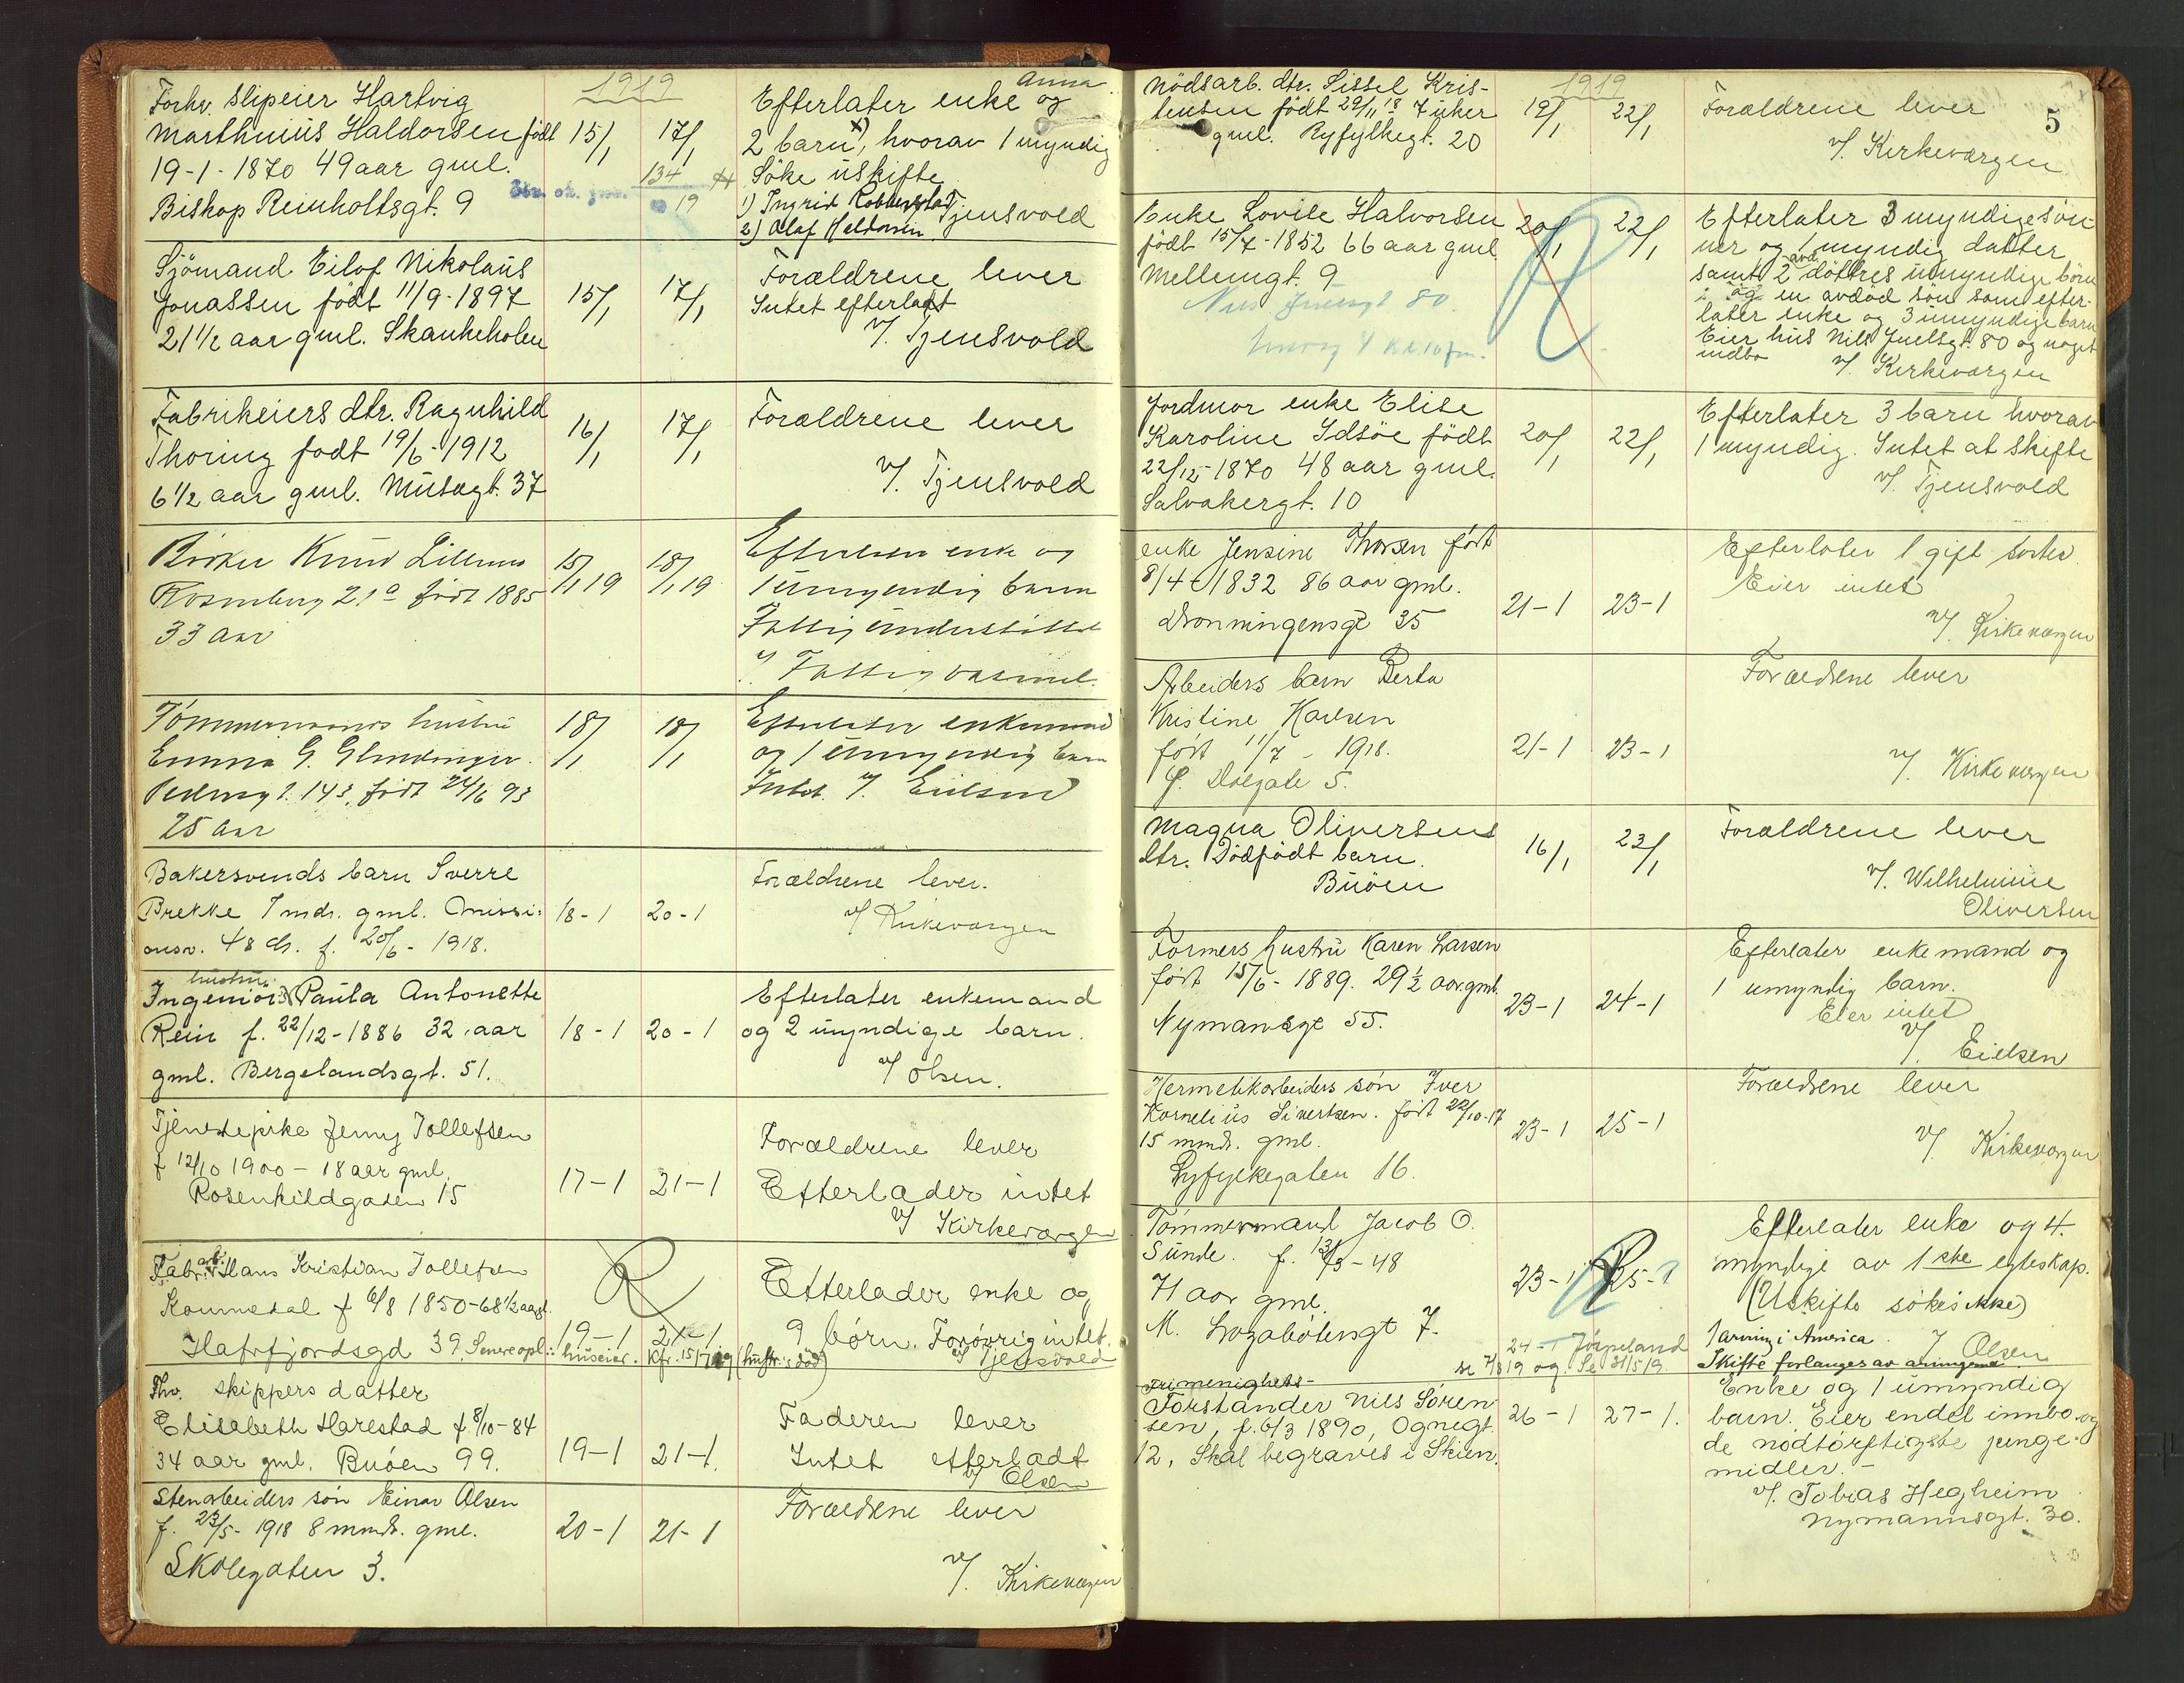 1919
Forhv. slipeier Hartvig
Marthinius Haldorsen født
19-1-1870 49 aar gml.
Biskop Reinholtsgt. 9
15/1 17/1
134
19
Efterlater enke Anna og
2 barn x), hvorav 1 myndig
Söke uskifte
1) Ingrid
2) Olaf Haldorsen Tjensvold
Sjömand Eilof Nikolaus
Jonassen født 11/9-1897
21 1/2 aar gml. Skankeholen
15/1 17/1
Forældrene lever
Intet efterladt
v/. Tjensvold
Fabrikeiers dtr. Ragnhild
Thoring født 19/6-1912
6 1/2 aar gml. Musægt. 37
16/1 17/1
Forældrene lever
v/. Tjensvold
Knud
Rosenberg 21a født 1885
33 aar
15/1 19 18/1 19
Efterlater enke og
1 umyndig barn
Fattigunderstöttet
v/ Fattigvæsenet.
Tömmermands hustru
Emma G. Glendinger.
Pedersgt. 143, født 24/6 93
25 aar
18/1 18/1
Efterlater enkemand
og 1 umyndig barn
Intet. v/. Eielsen
Bakersvends barn Sverre
Brekke 7 mdr. gml. Missi-
onsv. 48 f. 20/6-1918.
18-1 20-1
Forældrene lever.
v/ Kirkevargen
Ingeniörs hustru Paula Antonette
Rein f. 22/12-1886 32 aar
gml. Bergelandsgt. 51.
18-1 20-1
Efterlater enkemand
og 2 umyndige barn.
v/ Olsen.
Tjenestepike Jenny Tollefsen
f 12/10 1900 - 18 aar gml.
Rosenkildgaden 15
17-1 21-1
Forældrene lever
Efterlader intet
v/ Kirkevargen
Fabr. arb. Hans Kristian Tollefsen
Kommedal f 6/8 1850-68 1/2 aar gl.
Hafrfjordsgd 39. Senere opl.: huseier.
19-1 21-1
Kfr. 15/7 19 (hustr. : död)
Efterlader enke og
9 börn. Forövrig intet.
v/ Tjensvold
Fhv. skippers datter
Elisabeth Harestad f 8/10-84
34 aar gml. Buöen 99.
19-1 21-1
Faderen lever
Intet efterladt
v/ Olsen
Stenarbeiders søn Einar Olsen
f. 23/5-1918 8 mndr. gml.
Skolegaten 3.
20-1 21-1
Forældrene lever
v/. Kirkevargen
5
1919
Nödsarb. dtr. Sissel Kris-
tensen født 29/11 18 7 uker
gml. Ryfylkegt. 20
19/1 22/1
Forældrene lever
v/. Kirkevargen
Enke Lovise Halvorsen
født 15/7-1852 66 aar gml
Mellemgt. 9
80.
20/1 22/1
Efterlater 3 myndige søn-
ner og 1 myndig datter
samt 2 avd. döttres umyndige börn
og en avdød søn som efter-
later enke og 3 umyndige barn
Eier hus Nils Juelsgt. 80 og noget
indbo v/. Kirkevargen
Jordmor enke Elise
Karoline Idsöe født
22/12-1870 48 aar gml.
Salvakergt. 10
20/1 22/1
Efterlater 3 barn hvorav
1 myndig. Intet at skifte
v/. Tjensvold
enke Jensine Thorsen født
8/4-1832 86 aar gml.
Dronningensgt 35
21-1 23-1
Efterlater 1 gift
Eier intet
v/ Kirkevargen
Arbeiders barn Berta
Kristine Karlsen
født 11/7 - 1918.
Ø. Dolgate 5.
21-1 23-1
Forældrene lever
v/. Kirkevargen
Magna Oliversens
dtr. Dödfödt barn.
Buöen
16/1 23/1
Forældrene lever
v/. Wilhelmine
Oliversen
Formers hustru Karen Larsen
født 15/6-1889. 29 1/2 aar gml.
Nymansgt 55.
23-1 24-1
Efterlater enkemand og
1 umyndig barn.
Eier intet
v/. Eielsen
Hermetikarbeiders søn Iver
Kornelius Sivertsen. født 22/10-17
15 mndr. gml.
Ryfylkegaten 16.
23-1 25-1
Forældrene lever
v/. Kirkevargen
Tömmermand Jacob O.
Sunde. f. 13/3-48
71 aar gml.
M. 7.
23-1 25-1
24-1 Jörpeland
se 7/3 19 og Se 31/5 19.
Efterlater enke og 4
myndige av 1ste egteskap.
(Uskifte sökes ikke)
1 arving i America. v/ Olsen
Skifte forlanges av arvingerne.
Frimenighets-
Forstander Nils Sören-
sen, f. 6/3 1890, Ognegt.
12, Skal begraves i Skien.
26-1 27-1.
Enke og 1 umyndig
barn. Eier endel innbo og
de nödtörftigste penge-
midler. -
v/. Tobias Hegheim
Nymannsgt. 30.